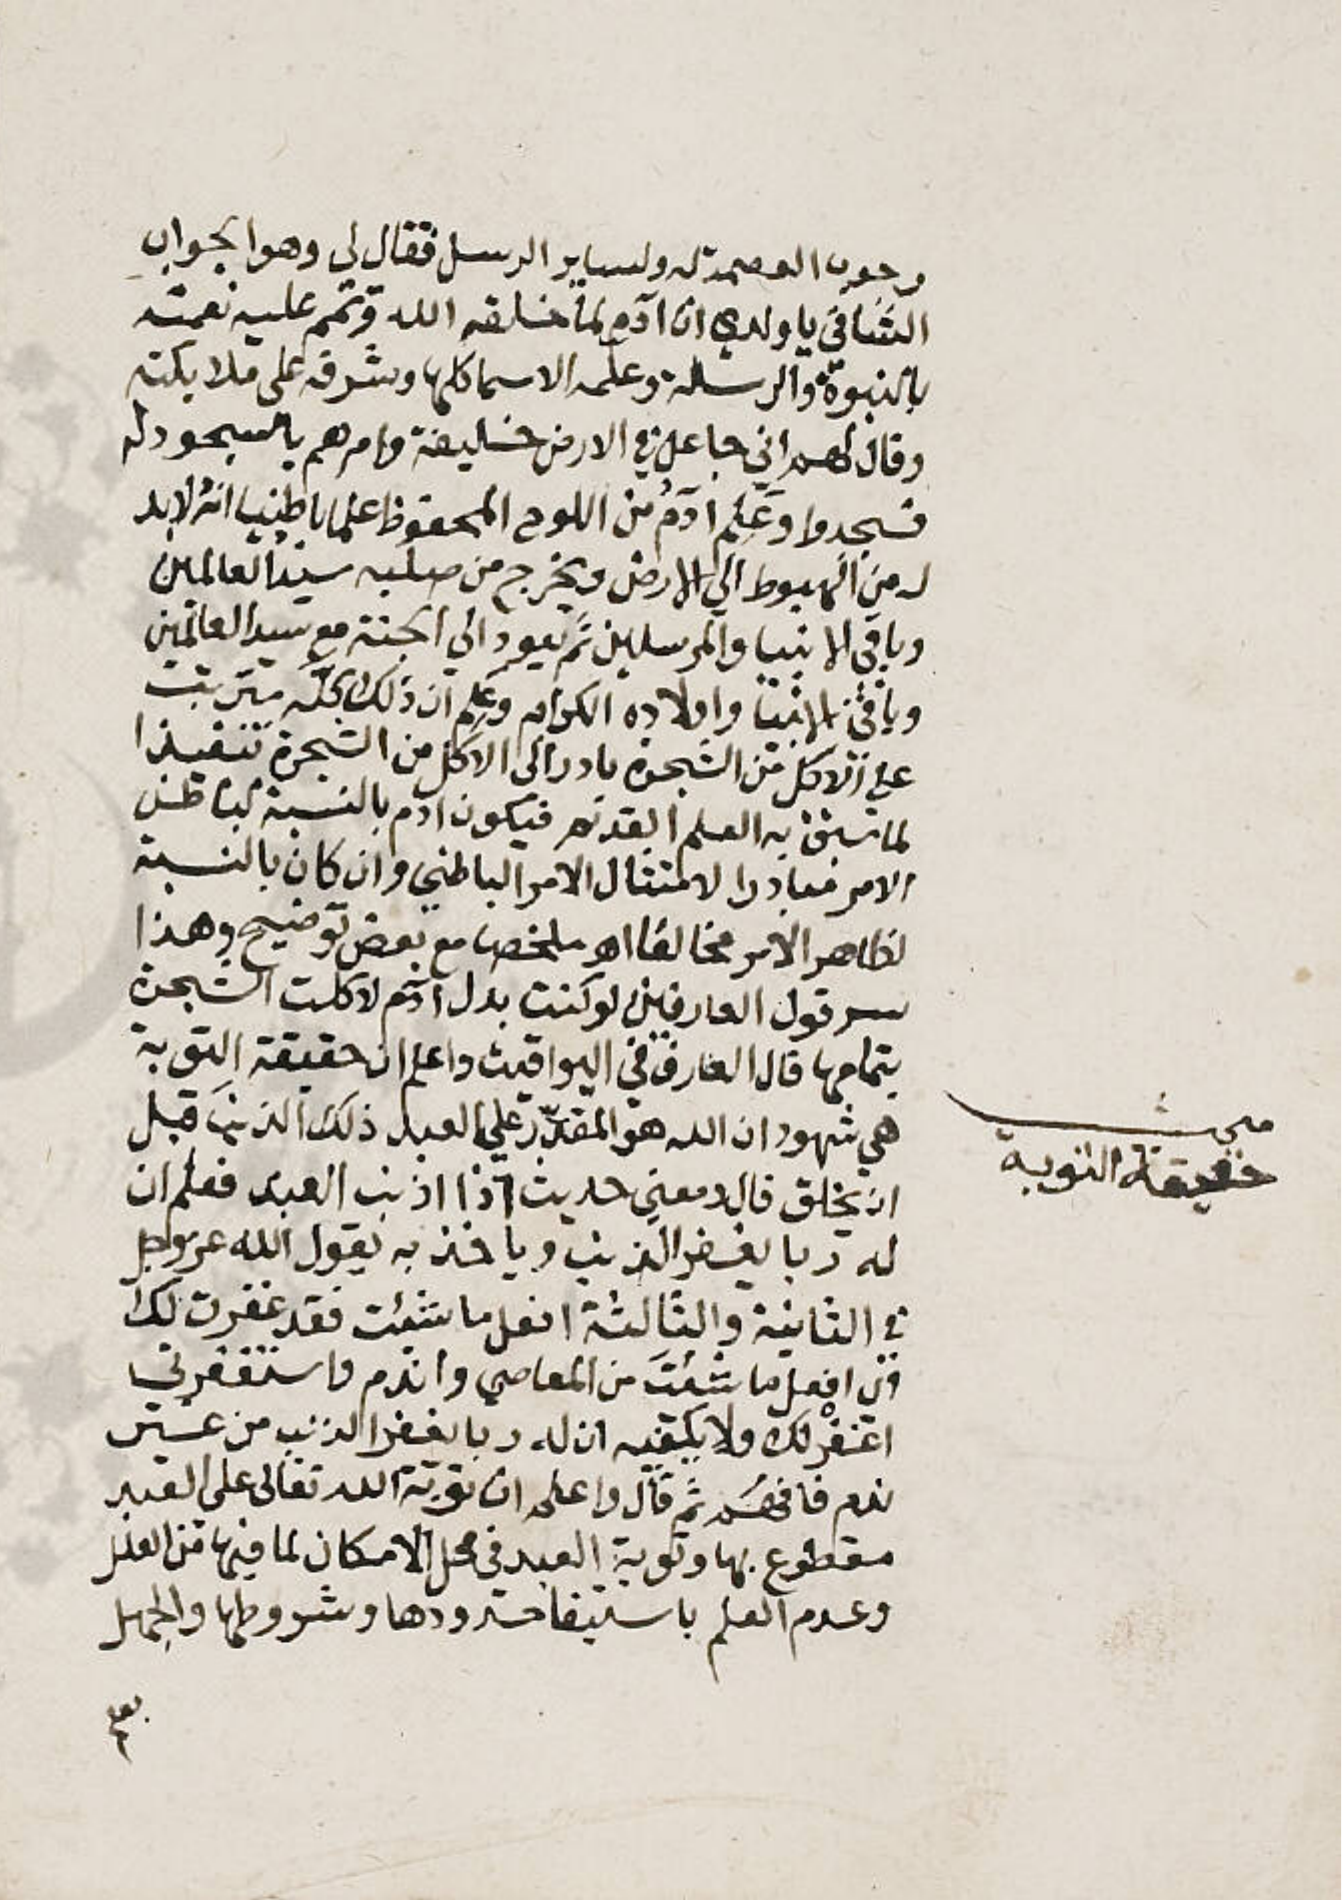 وجوب العصمة له ولساير الرسل فقال لى وهو الجواب
الشافي يا ولدي ان آدم لما خلقه الله وتمم عليه نعمته
بالنبوة والرسالة وعلمه الاسما كلها وشرفه على ملايكته
وقال لهم اني جاعل في الارض خليفة وامرهم بالسجود له
فسجدوا وعَلِم آدمُ من اللوح المحفوظ علما باطنيا انه لابد
له من الهبوط الي الارض ويخرج من صلبه سيد العالمين
وباقي الانبيا والمرسلين ثم يعود الي الجنة مع سيد العالمين
وباقي الانبيا واولاده الكرام وعلم ان ذلك كله مترتب
على الاكل من الشجرة بادر الى الاكل من الشجرة تنفيذا
لما سبق به العلم القديم فيكون ادم بالنسبة لباطن
الامر مبادرا لامتثال الامر الباطني وان كان بالنسبة
لظاهر الامر مخالفا اهـ ملخصا مع بعض توضيح وهذا
سر قول العارفين لو كنت بدل آدم لاكلت الشجرة
بتمامها قال العارف في اليواقيت واعلم ان حقيقة التوبة
هي شهود ان الله هو المقدّر علي العبد ذلك الذنب قبل
ان يخلق قال ومعني حديث اذا اذنب العبد فعلم ان
له ربا يغفر الذنب وياخذ به يقول الله عز وجل
في الثانية والثالثة افعل ما شئت فقد غفرت لك
اي افعل ما شئتَ من المعاصي واندم واستغفرني
اغفر لك ولا يكفيه ان له ربا يغفر الذنب من غير
ندم فافهم ثم قال واعلم ان توبة الله تعالى على العبد
مقطوع بها وتوبة العبد في محل الامكان لما فيها من العلل
وعدم العلم باستيفا حدودها وشروطها والجهل
مبحث
حقيقة التوبة